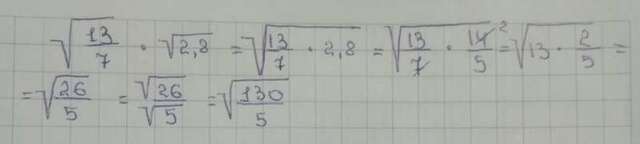 √(13/7) · √2,8 = √(13/7 · 2,8) = √(13/7 · 14/5) ² = √(13 · 2/5) =
= √(26/5) = √26/√5 = √(130/5)